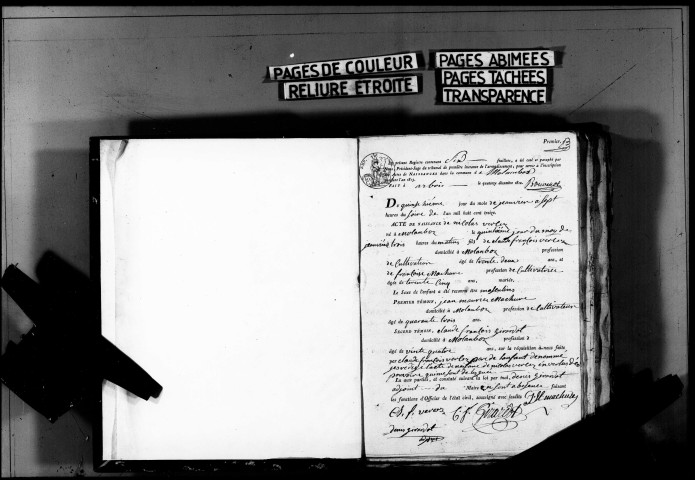 PAGES DE COULEUR
RELIURE ETROITE
PAGES ABIMEES
PAGES TACHEES
TRANSPARENCE
Premier.
Le présent Registre contenant Six feuillets, a été coté et paraphé par
Nous, Président-Juge du tribunal de première instance de l'arrondissement, pour servir à l'inscription
des Actes de NAISSANCES dans la commune d
pendant l'an 1813.
FAIT à arbois le quatorze décembre 1812
Du quinzieme jour du mois de jeanvier a sept
heures du soire de l'an mil huit cent treize
ACTE DE NAISSANCE de nicolas verley
né à Molanboz le quinzieme jour du moy de
jeanvier a trois heures du matin fils de claude françois verley
domicilié à Molanboz profession
de Cultivateur âgé de trente deux ans, et
de françoise Machure profession de Cultivatrice
âgée de trente Cinq ans, mariés.
Le Sexe de l'enfant a été reconnu être masculin
PREMIER TÉMOIN, jean Machure
domicilié à Molanboz profession de Cultivateur
âgé de quarante trois ans.
SECOND TÉMOIN, claude françois girardot
domicilié à Molanboz profession d
âgé de vinte quatre ans, sur la réquisition à nous faite,
par claude françois verley pere de l'enfant
Et aux parties, et constaté suivant la loi par moi, denis girardot
adjoint du Maire absence faisant
les fonctions d'Officier de l'état civil, soussigné avec
C. f. verley C f Girardot
denis girardot